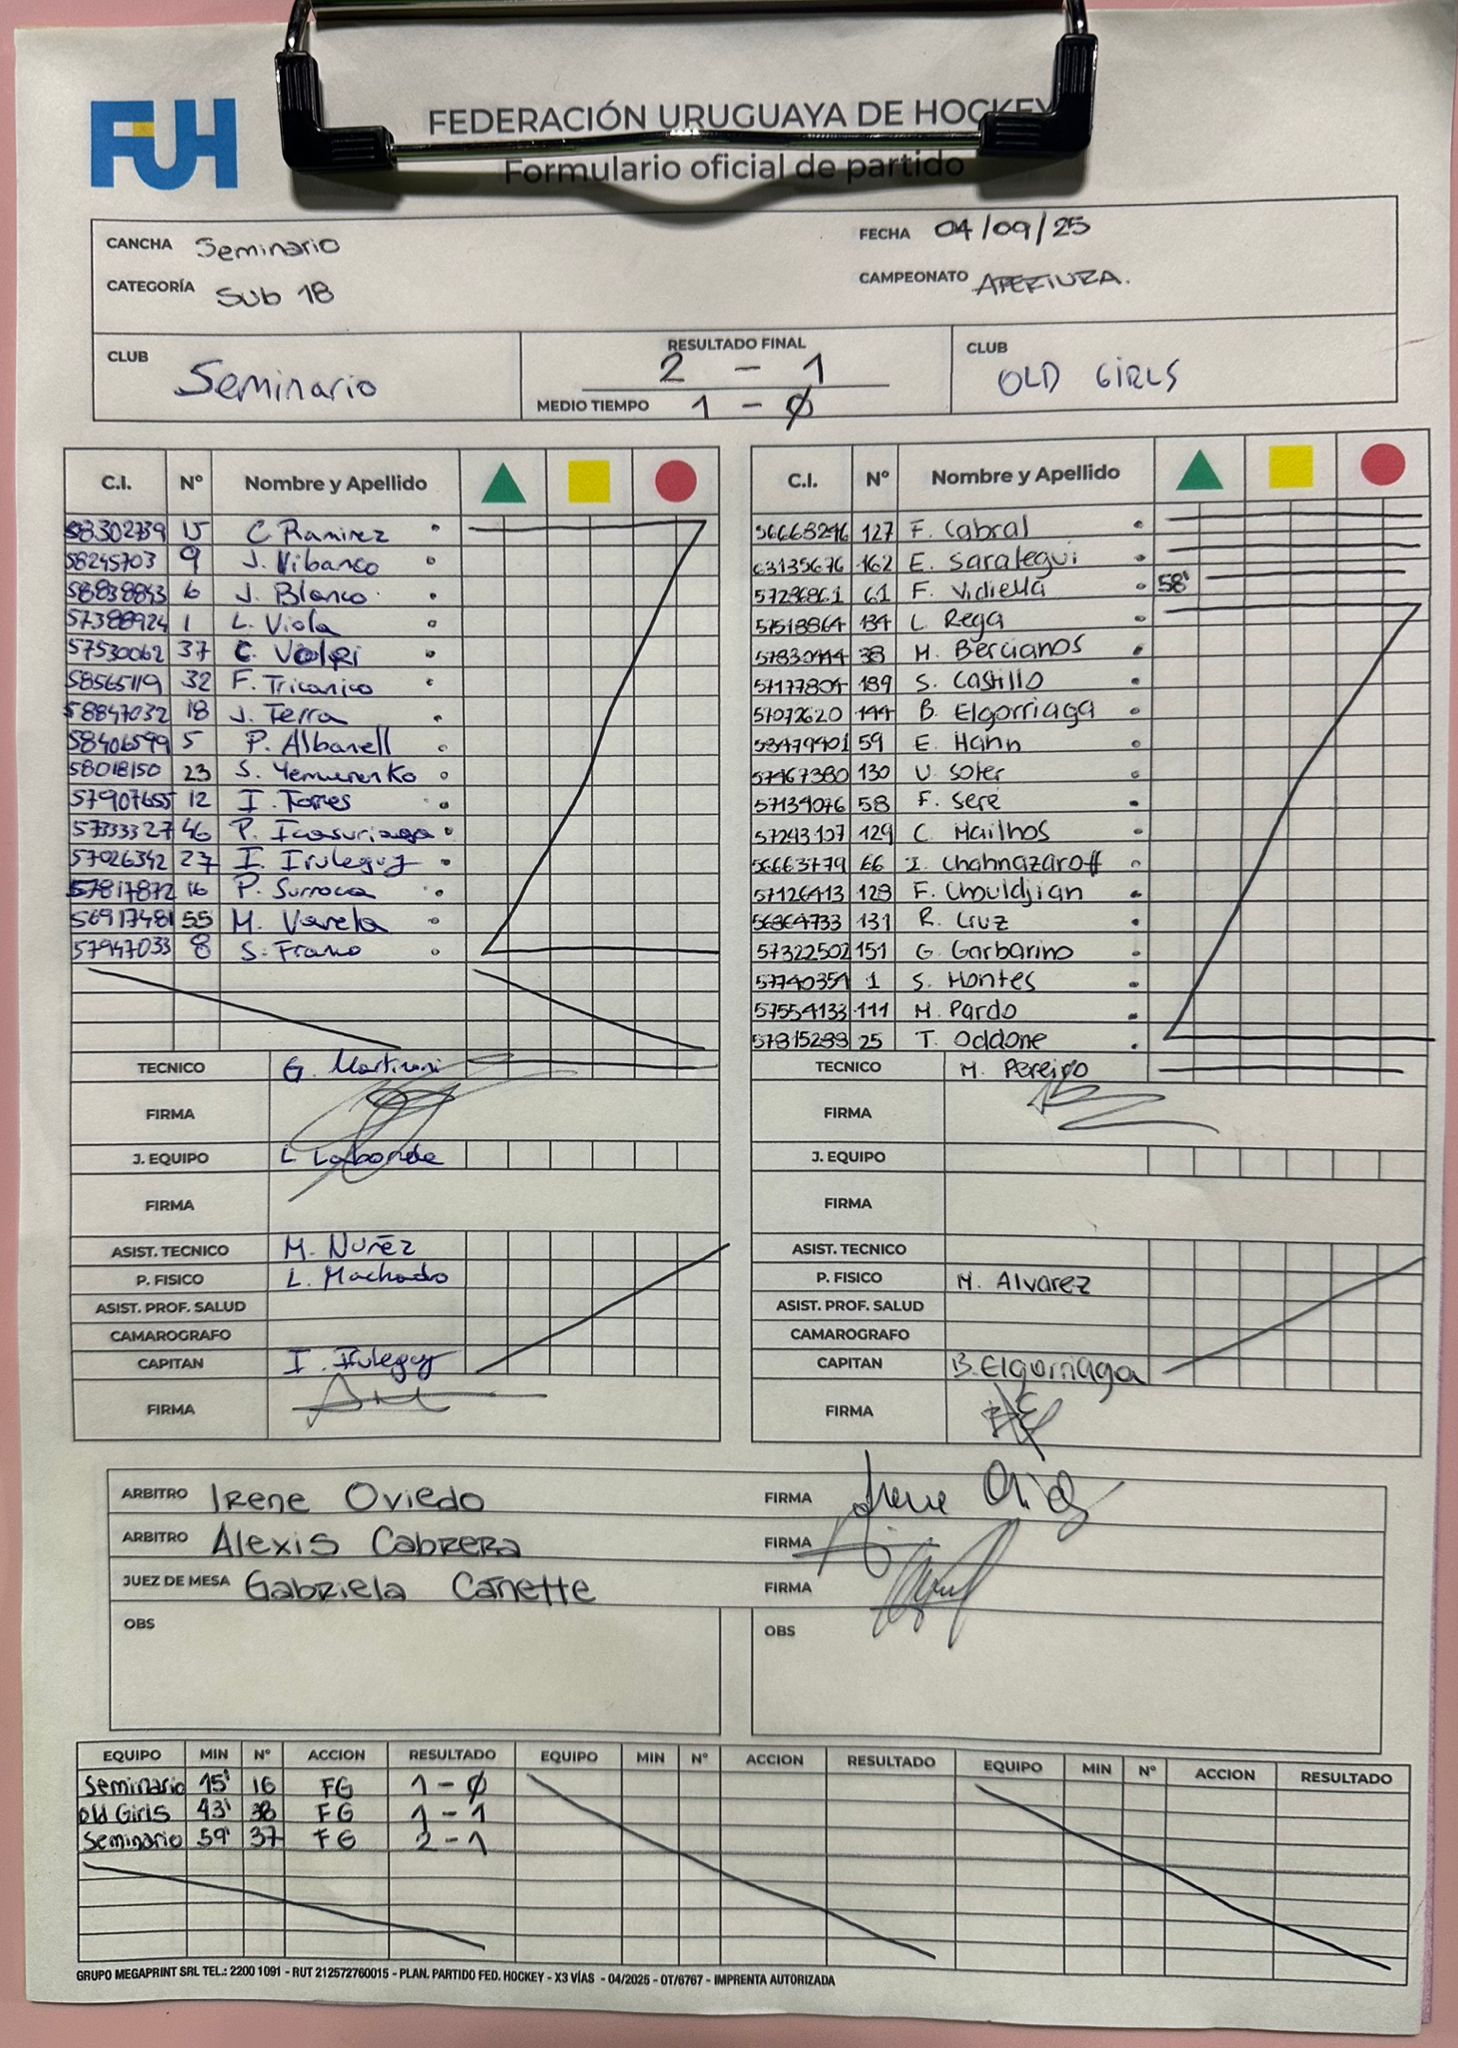 FUH
FEDERACIÓN URUGUAYA DE HOCKEY
Formulario oficial de partido
CANCHA Seminario FECHA 04/09/25
CATEGORÍA Sub 18 CAMPEONATO APERTURA.
CLUB Seminario RESULTADO FINAL 2 - 1 CLUB OLD GIRLS
MEDIO TIEMPO 1 - 0
C.I. Nº Nombre y Apellido
58302739 15 C Ramirez
58245703 9 J. Vibanco
58838843 6 J. Blanco
57388924 1 L. Viola
57530062 37 C. Volpi
58565119 32 F. Tricanico
58847032 18 J. Terra
58406599 5 P. Albanell
58018150 23 S. Yemurenko
57907655 12 I. Torres
57333327 46 P. Icasuriaga
57026342 27 I. Iruleguy
57817872 16 P. Surroca
56917481 55 M. Varela
57947033 8 S. Franco
TECNICO G. Martinoni
FIRMA
J. EQUIPO L Laborde
FIRMA
ASIST. TECNICO M. Nuñez
P. FISICO L. Machado
ASIST. PROF. SALUD
CAMAROGRAFO
CAPITAN I. Iruleguy
FIRMA
C.I. Nº Nombre y Apellido
56668296 127 F. Cabral
63135676 162 E. Saralegui
57286861 61 F. Vidiella 58'
57518864 134 L. Rega
57830944 38 M. Bercianos
57177804 189 S. Castillo
57072620 144 B. Elgorriaga
58479901 59 E. Hahn
57467380 130 V. Soler
57134076 58 F. Sere
57243107 129 C. Mailhos
56663779 66 I. Chahnazaroff
57126413 128 F. Chouldjian
56864733 131 R. Cruz
57322502 151 G. Garbarino
57740354 1 S. Montes
57554133 111 M. Pardo
57815288 25 T. Oddone
TECNICO M. Pereiro
FIRMA
J. EQUIPO
FIRMA
ASIST. TECNICO
P. FISICO M. Alvarez
ASIST. PROF. SALUD
CAMAROGRAFO
CAPITAN B. Elgorriaga
FIRMA
ARBITRO Irene Oviedo FIRMA
ARBITRO Alexis Cabrera FIRMA
JUEZ DE MESA Gabriela Canette FIRMA
OBS OBS
EQUIPO MIN Nº ACCION RESULTADO EQUIPO MIN Nº ACCION RESULTADO EQUIPO MIN Nº ACCION RESULTADO
Seminario 15' 16 FG 1 - 0
Old Girls 43' 38 FG 1 - 1
Seminario 59' 37 FG 2 - 1
GRUPO MEGAPRINT SRL TEL.: 2200 1091 - RUT 212572760015 - PLAN. PARTIDO FED. HOCKEY - X3 VÍAS - 04/2025 - OT/6767 - IMPRENTA AUTORIZADA